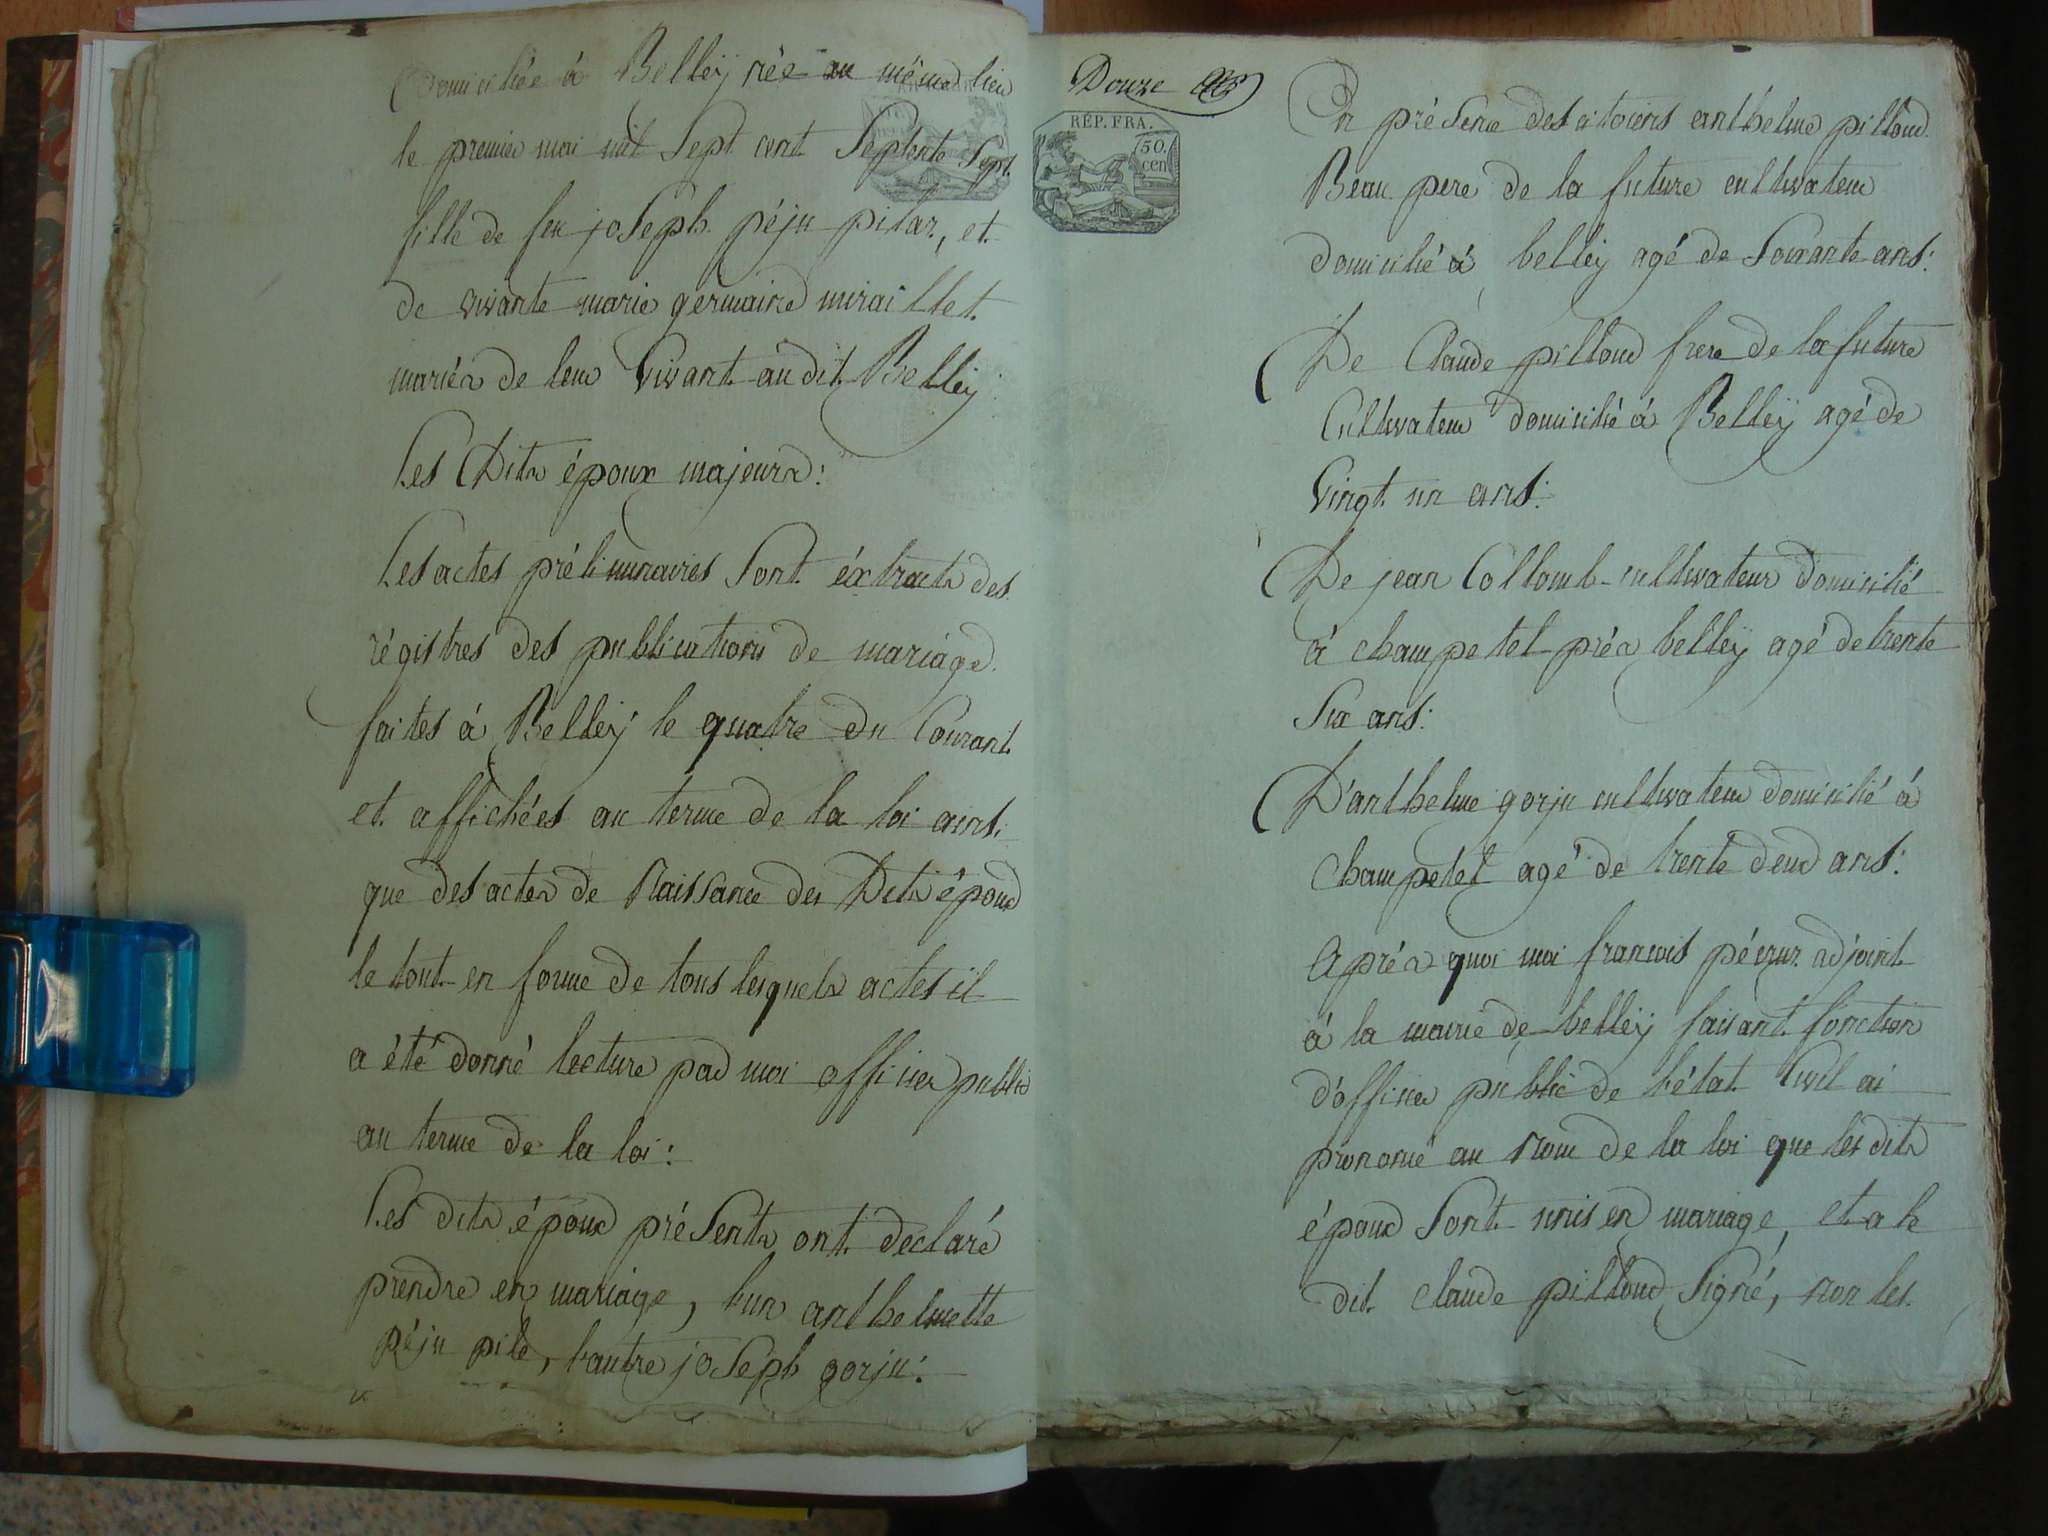 Domiciliée á Belleÿ née au même lieu
le premier mai mil Sept cent Septente Sept
fille de feu joSeph péju pilaz, et
de vivante marie germaine miraillet
mariés de leur Vivant audit Belleÿ
Les Dits époux majeurs:
Les actes préliminaires Sont éxtraits des
régistres des publications de mariage
faites á Belleÿ le quatre du Courant
et affichées au terme de la loi ainsi
que des actes de Naissance des Dits époux
le tout en forme de tous lesquels actes il
a été donné lecture par moi officier public
au terme de la loi:
Les dits époux préSents ont declaré
prendre en mariage, l'un anthelmette
péju pile, l'autre joSeph gorju:
Douze
RÉP. FRA.
50.
cen
En préSence des citoiens anthelme pilloud
Beau pere de la future cultivateur
domicilié á belleÿ agé de Soixante ans:
De Claude pilloud frere de la future
Cultivateur domicilié á Belleÿ agé de
Vingt un ans:
De jean Collomb cultivateur domicilié
á champetel prés belleÿ agé de trente
Six ans:
D'anthelme gorju cultivateur domicilié á
champetel agé de trente deux ans:
Aprés quoi moi francois adjoint
á la mairie de belleÿ faisant fonction
d'officier public de l'état Civil ai
prononcé au Nom de la loi que les dits
époux Sont unis en mariage, et a le
dit claude pilloud Signé, non les